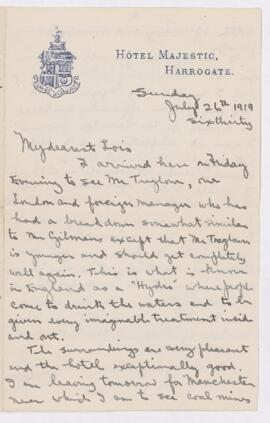 HÔTEL MAJESTIC,
HARROGATE.
Sunday
July 26th 1919
Sixthirty
My dearest Lois
I arrived here on Friday
Evening to see Mr Treglown, our
London and foreign manager who has
had a breakdown somewhat similar
to Mr Gilmans except that Mr Treglown
is younger and should get completely
well again. This is what is known
in England as a "Hydro" where people
come to drink the waters and to be
given every imaginable treatment inside
and out.
The surroundings are very pleasant
and the hotel exceptionally good.
I am leaving tomorrow for Manchester
near which I am to see coal mines